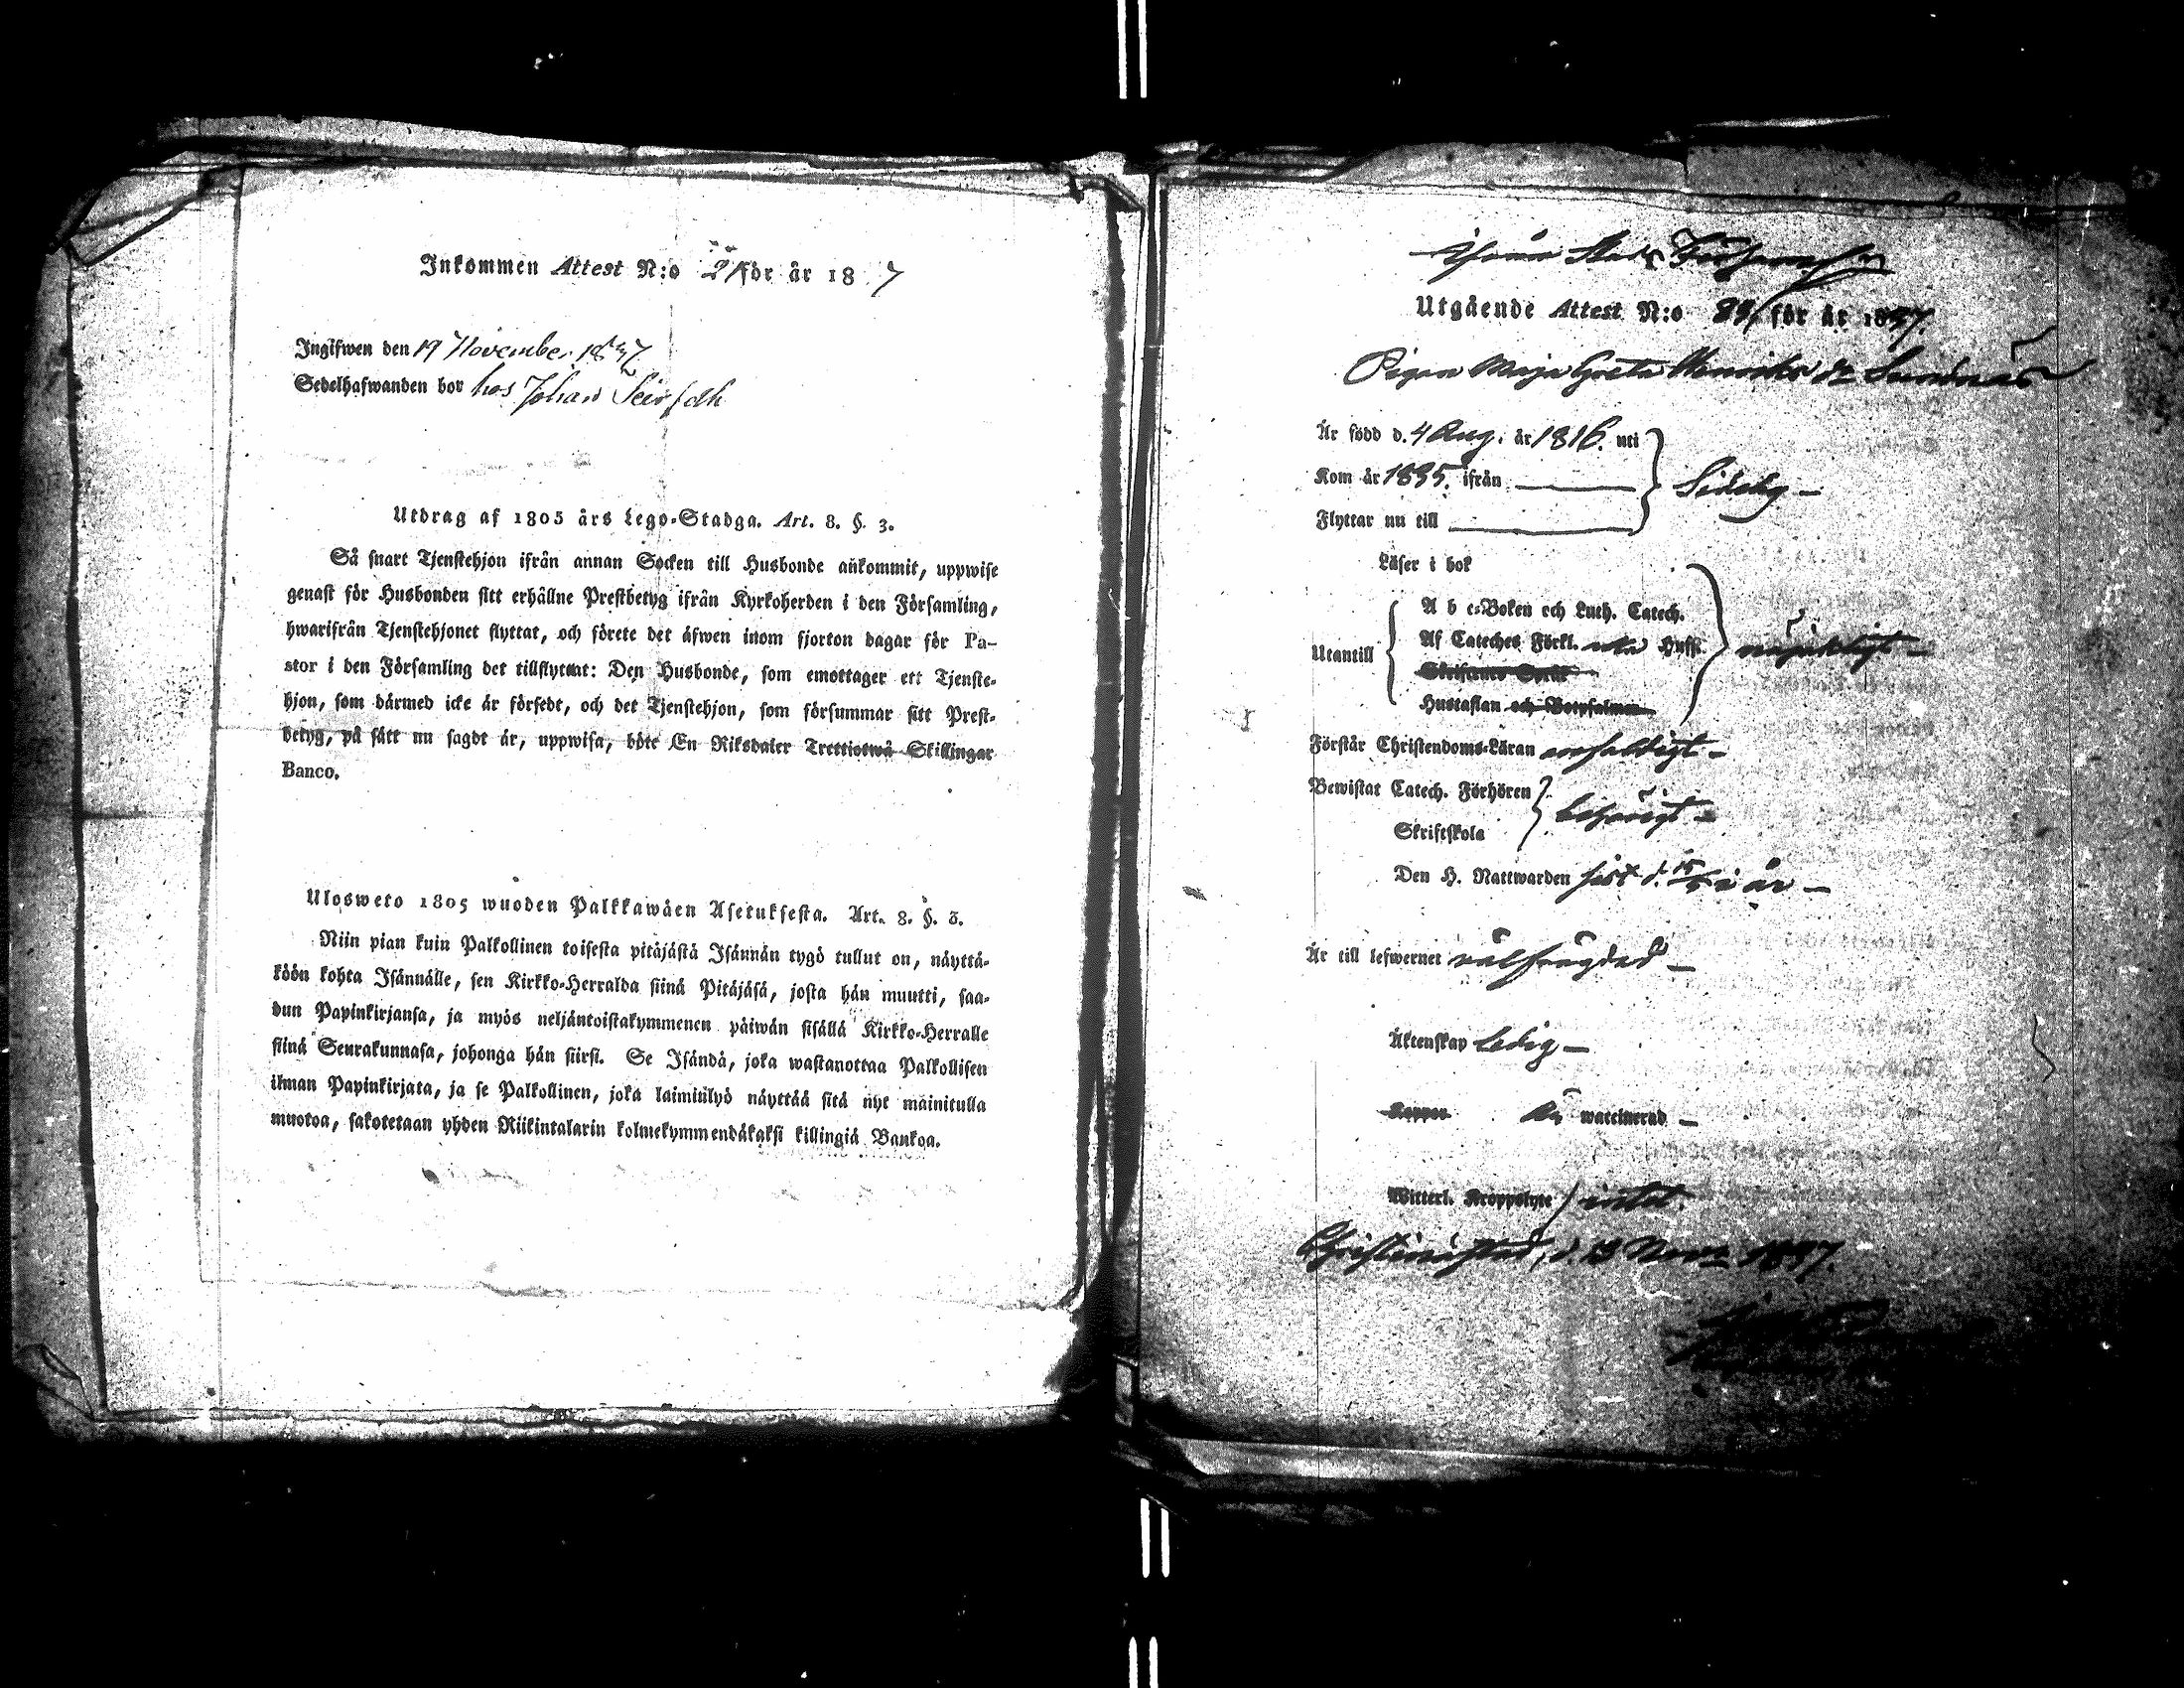 Inkommen Attest N:o 21 för år 18 7
Ingifwen den 19 November 1837
Sedelhafwanden bor hos Johan
Utdrag af 1805 års Lego-Stadga. Art. 8. §. 3.
Så snart Tjenstehjon ifrån annan Socken till Husbonde ankommit, uppwise
genast för Husbonden sitt erhållne Prestbetyg ifrån Kyrkoherden i den Församling,
hwarifrån Tjenstehjonet flyttat, och förete det äfwen inom fjorton dagar för Pa-
stor i den Församling det tillflyttat: Den Husbonde, som emottager ett Tjenste-
hjon, som därmed icke är försedt, och det Tjenstehjon, som försummar sitt Prest-
betyg, på sätt nu sagdt är, uppwisa, böte En Riksdaler Trettiotwå Skillingar
Banco.
Ulosweto 1805 wuoden Palkkawäen Asetuksesta. Art. 8. §. 3.
Niin pian kuin Palkollinen toisesta pitäjästä Isännän tygö tullut on, näyttä-
köön kohta Isännälle, sen Kirkko-Herralda siinä Pitäjäsä, josta hän muutti, saa-
dun Papinkirjansa, ja myös neljäntoistakymmenen päiwän sisällä Kirkko-Herralle
siinä Seurakunnasa, johonga hän siirsi. Se Isändä, joka wastanottaa Palkollisen
ilman Papinkirjata, ja se Palkollinen, joka laiminlyö näyttää sitä nyt mainitulla
muotoa, sakotetaan yhden Riikintalarin kolmekymmendäkaksi killingiä Bankoa.
Utgående Attest N:o 89 för år 1837.
Pigan Maja Greta Henriks dr Sundnäs
Är född d. 4 Aug. år 1816. uti
Kom år 1835. ifrån
Sideby
Flyttar nu till
Läser i bok
A b c-Boken och Luth. Catech.
Utantill
Af Cateches Förkl. utan Hufs.
nöjaktigt
Skriftenes Språk
Hustaflan och Botpsalmen
Förstår Christendoms-Läran enfaldigt
Bewistat Catech. Förhören
behörigt
Skriftskola
Den H. Nattwarden sist d. 15/5 i år
Är till lefwernet välfrägdad
Äktenskap Ledig
Koppor Är waccinerad
Witterl. Kroppslyte intet.
Christinæstad, d. 13 Novr 1837.